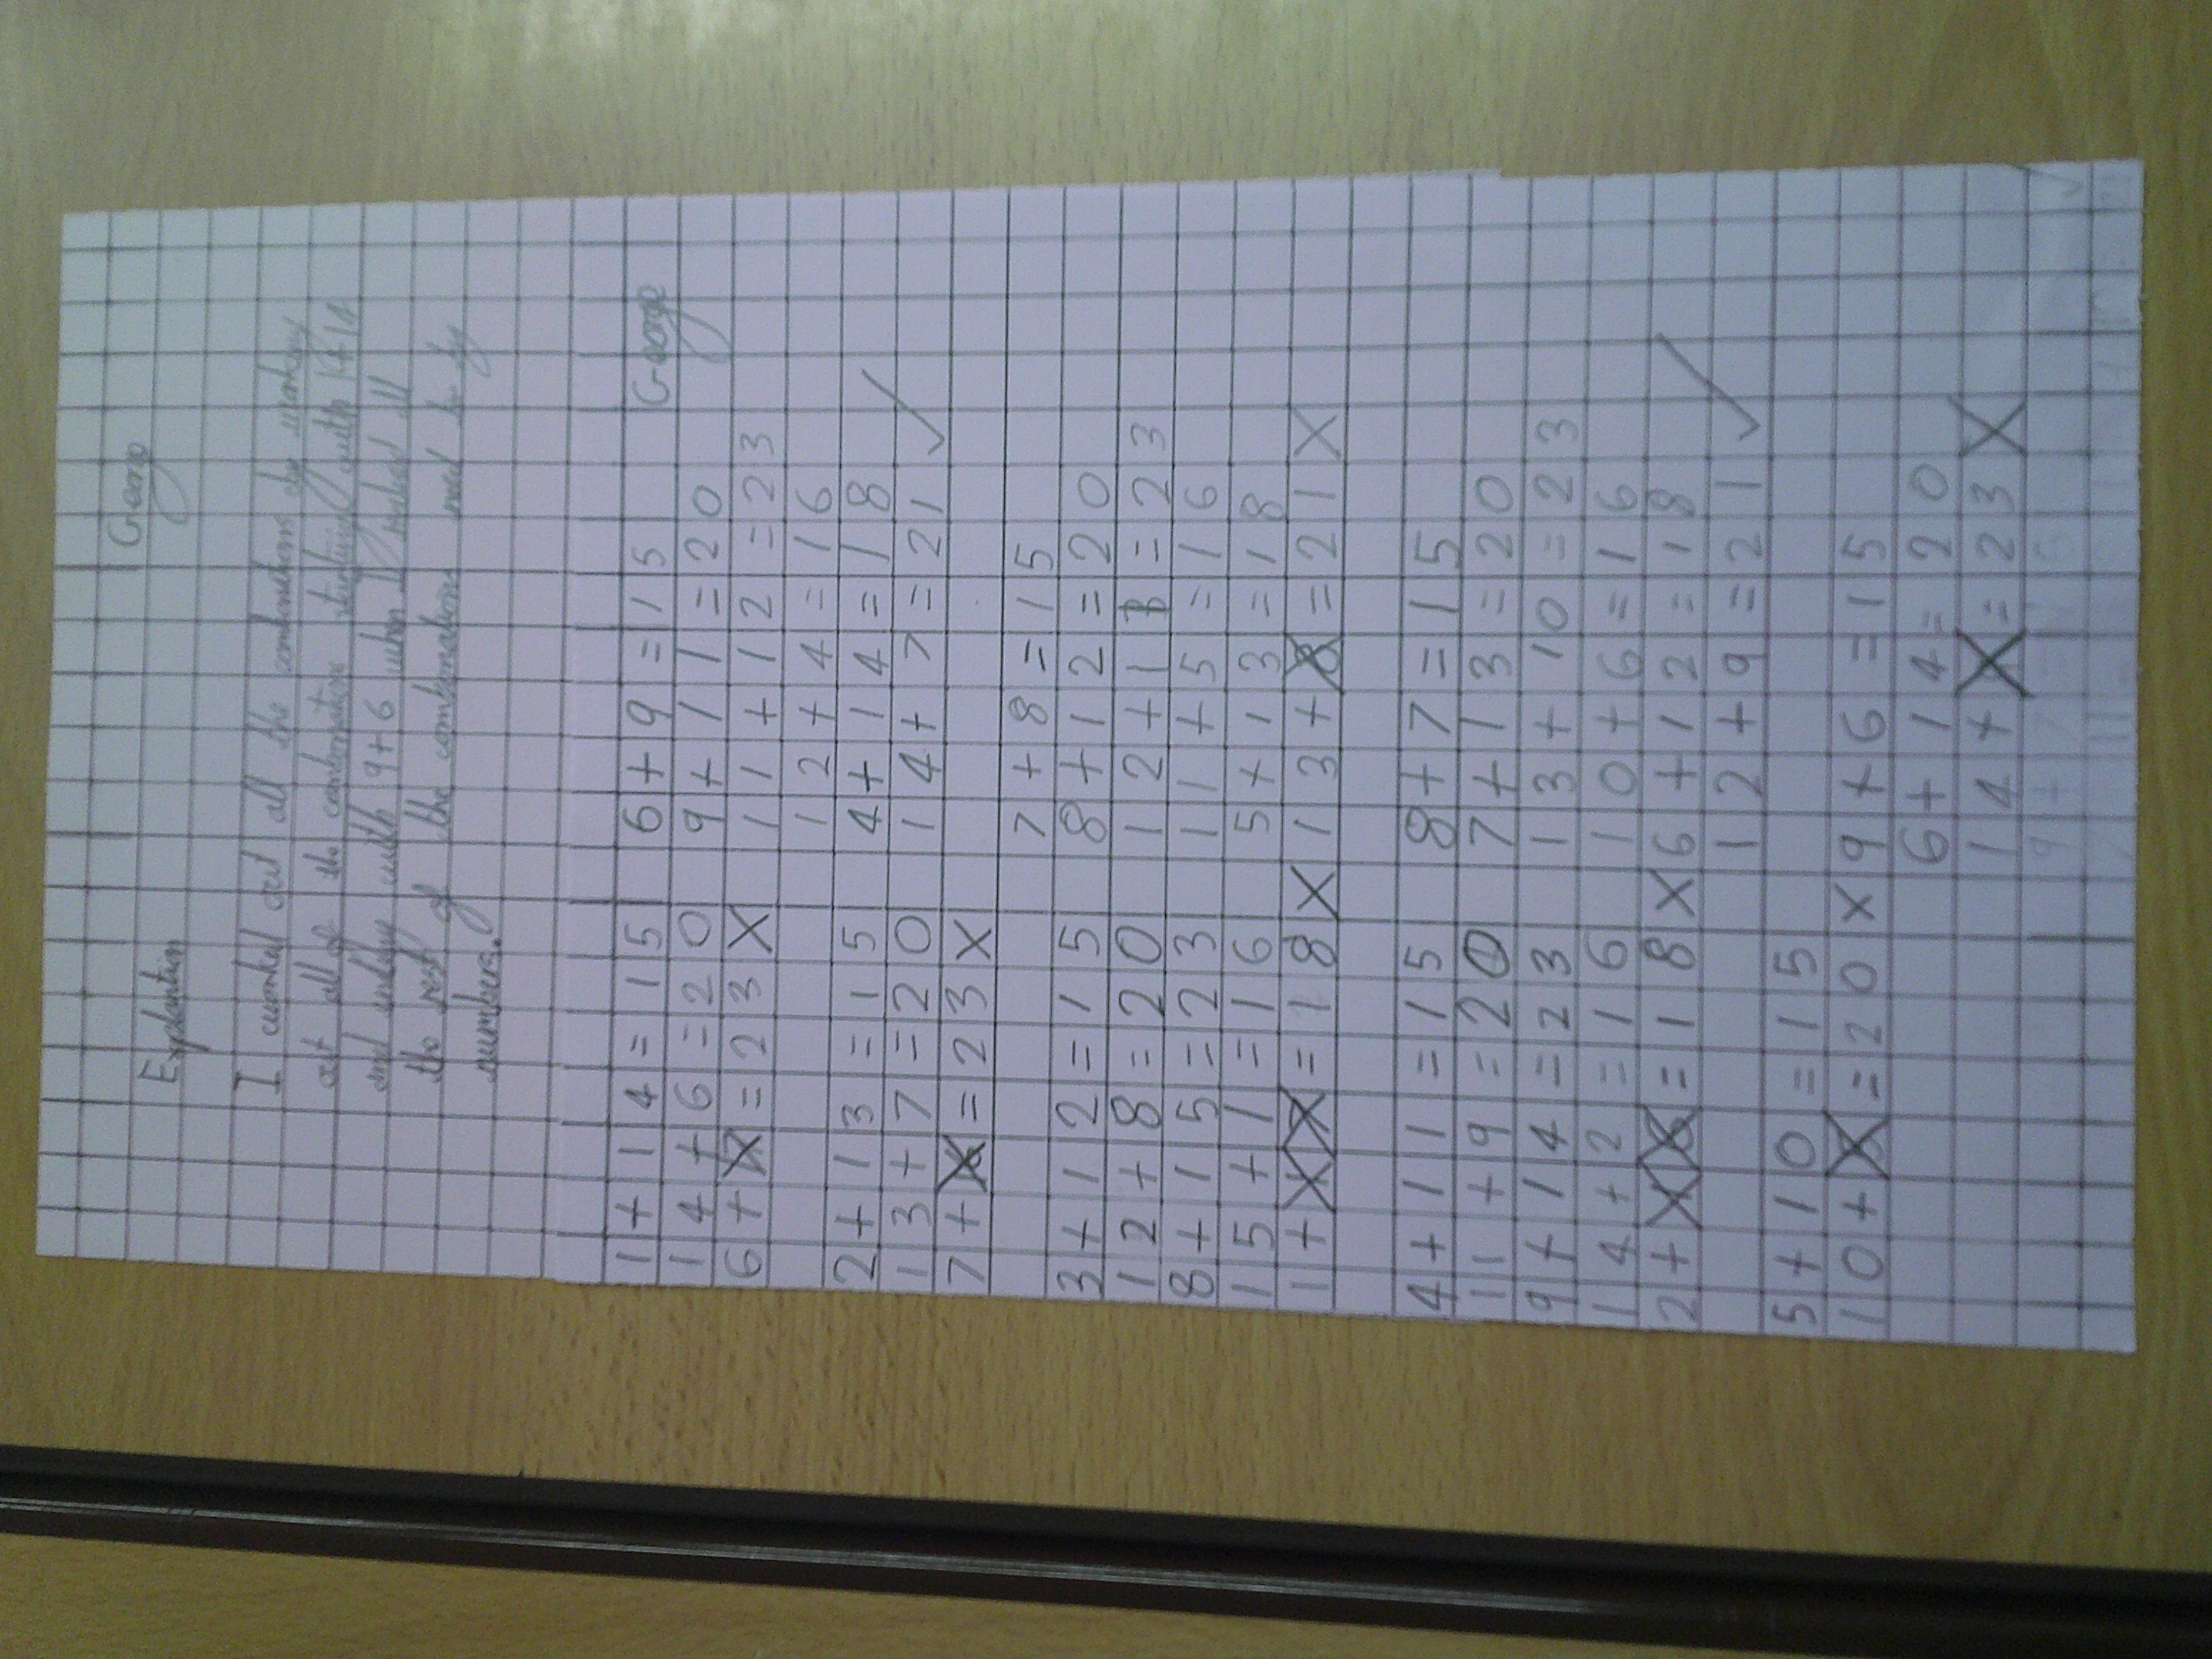 George
Explantion
I worked out all the combinations by working
out all of the combination starting with 1+14
and ending with 9+6 when I worked all
the rest of the combinations and the
numbers.
George
1+14=15
14+6=20
6+X=23X
6+9=15
9+11=20
11+12=23
12+4=16
4+14=18
14+7=21 ✓
2+13=15
13+7=20
7+X=23X
7+8=15
8+12=20
12+11=23
11+5=16
5+13=18
13+8=21X
3+12=15
12+8=20
8+15=23
15+1=16
1+XX=18X
8+7=15
7+13=20
13+10=23
10+6=16
6+12=18
12+9=21 ✓
4+11=15
11+9=20
9+14=23
14+2=16
2+XX=18X
9+6=15
6+14=20
14+X=23X
5+10=15
10+X=20X